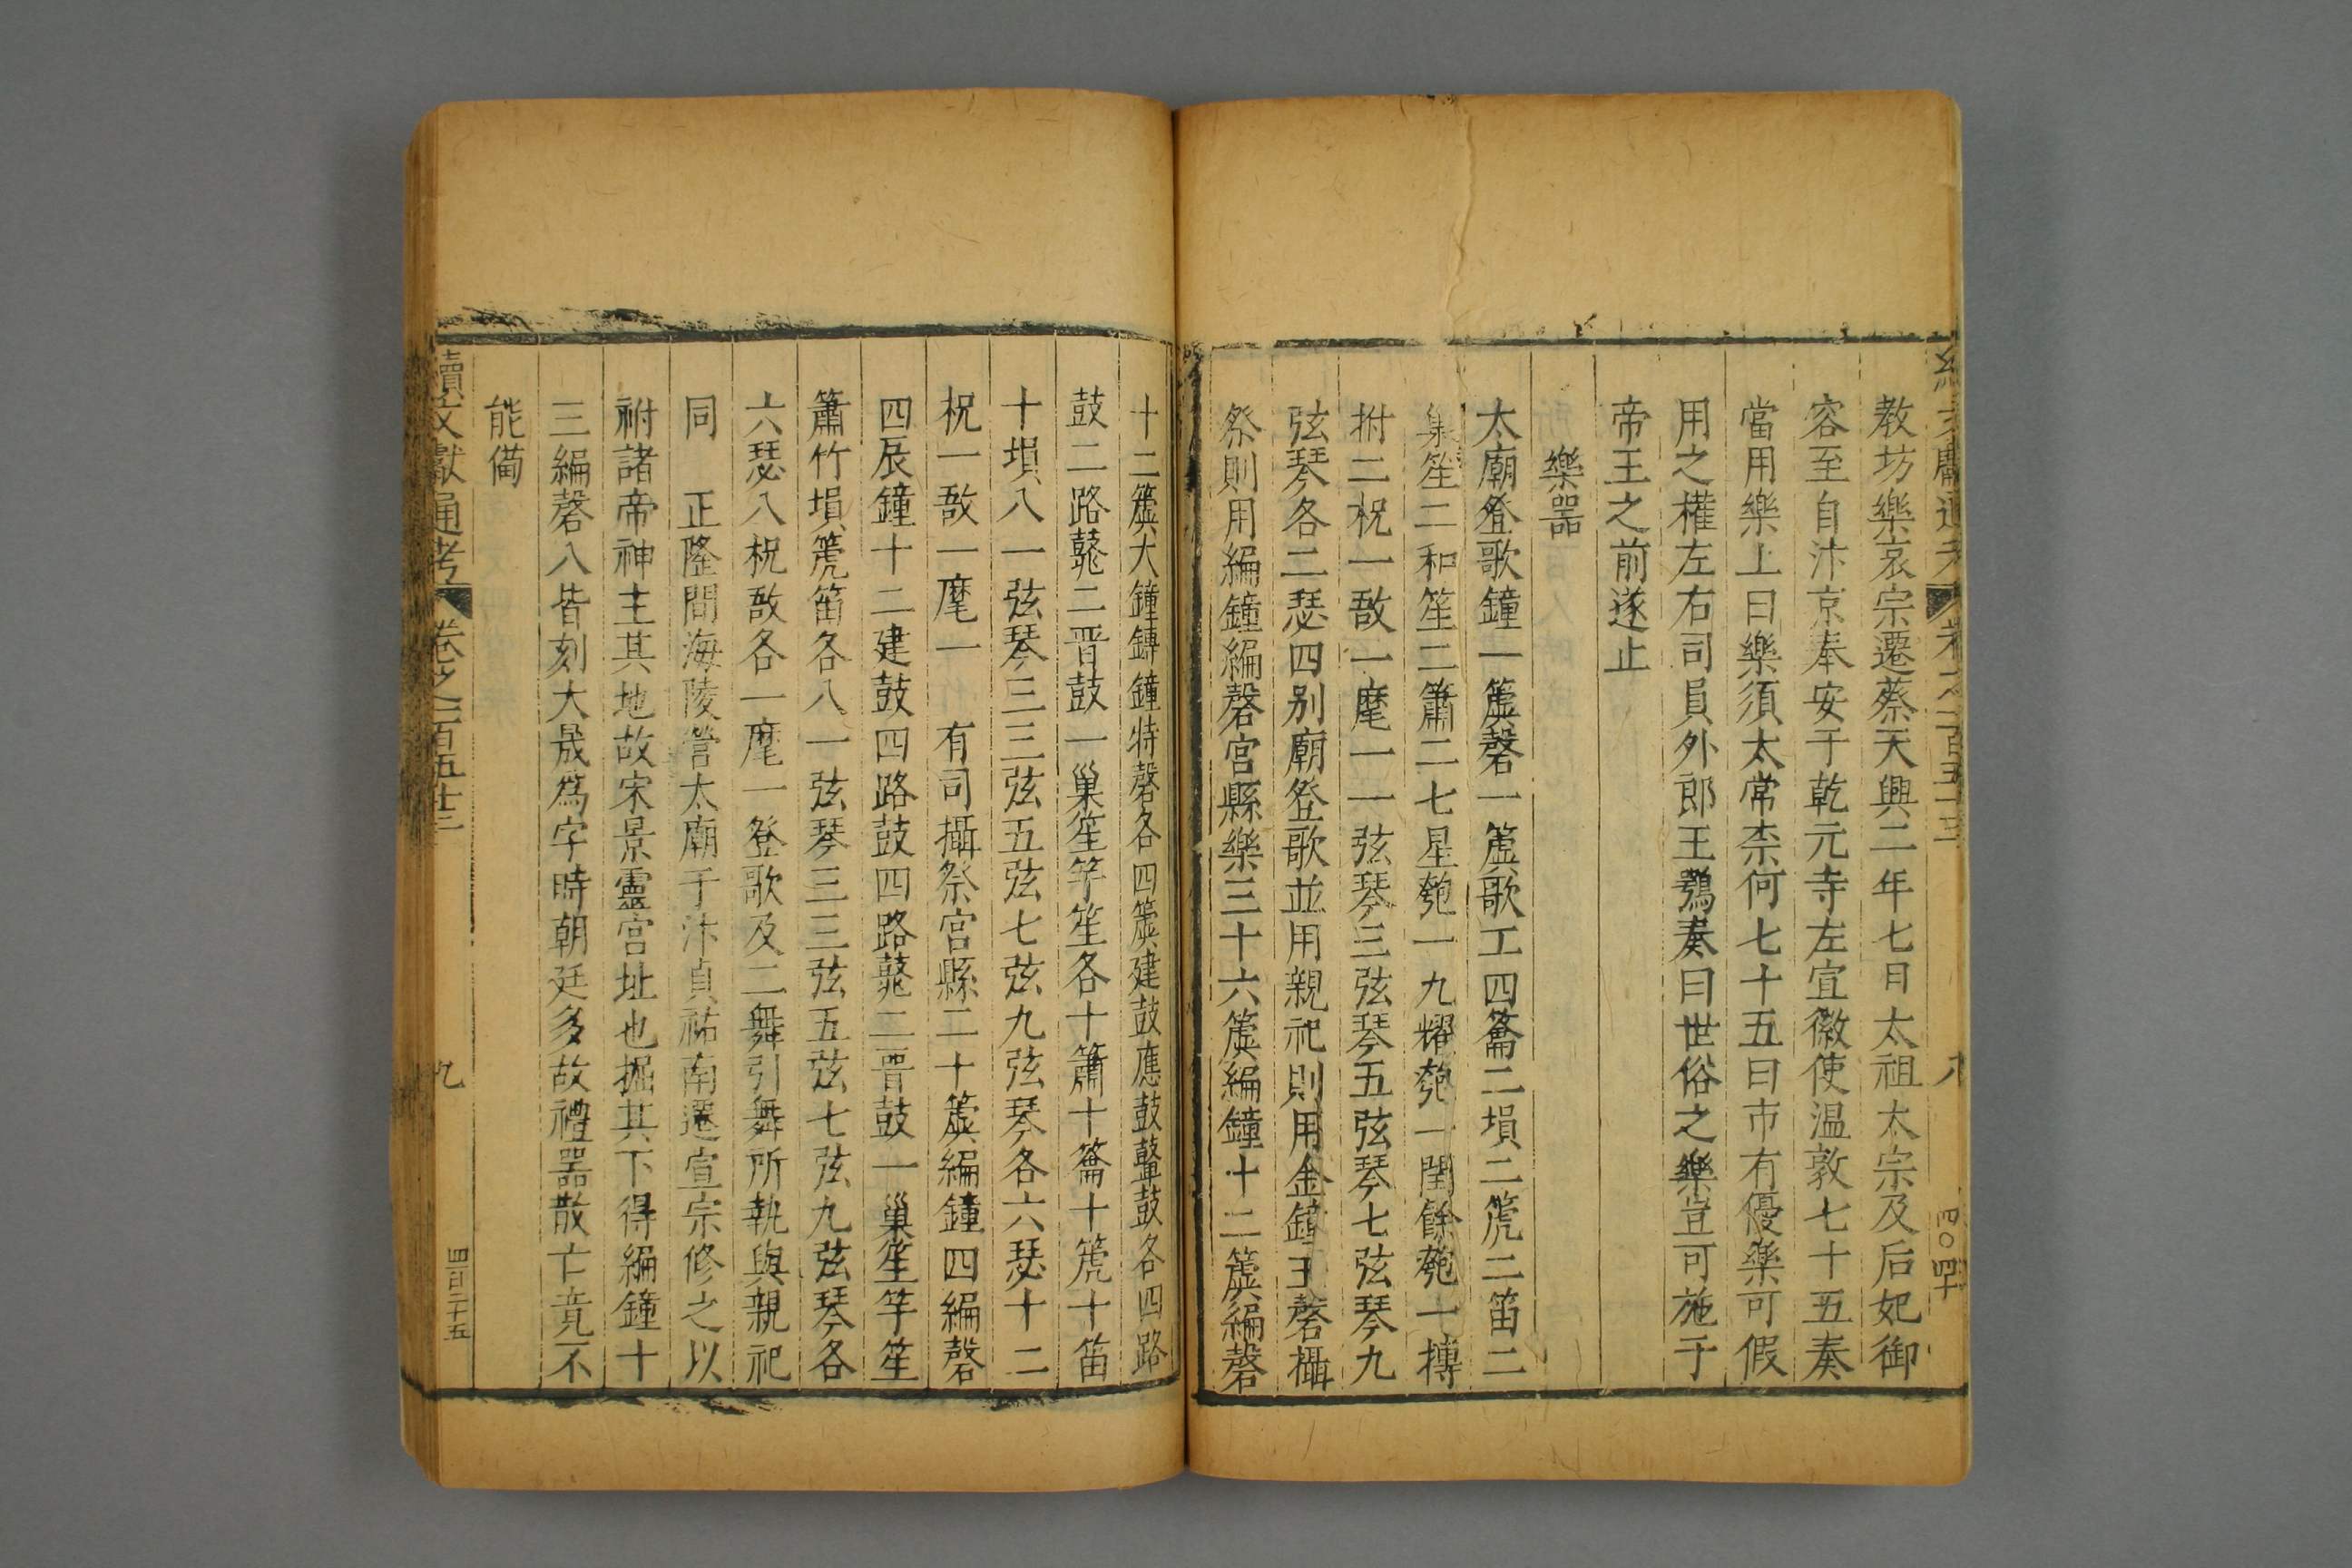 教坊樂哀宗遷蔡天興二年七日太祖太宗及后妃御
容至自汴京奉安于乾元寺左宣徽使温敦七十五奏
當用樂上曰樂須太常柰何七十五曰市有優樂可假
用之權左右司員外郎王鶚奏曰世俗之樂豈可施于
帝王之前遂止
樂器
太廟登歌鐘一簴磬一簴歌工四籥二塤二篪二笛二
巢笙二和笙二簫二七星匏一九耀匏一閏餘匏一搏
拊二柷一敔一麾一一弦琴三弦琴五弦琴七弦琴九
弦琴各二瑟四别廟登歌並用親祀則用金鐘玉磬攝
祭則用編鐘編磬宫縣樂三十六簴編鐘十二簴編磬
十二簴大鐘鎛鐘特磬各四簴建鼓應鼓鞞鼓各四路
鼓二路鼗二晋鼓一巢笙竽笙各十簫十籥十篪十笛
十塤八一弦琴三三弦五弦七弦九弦琴各六瑟十二
柷一敔一麾一 有司攝祭宫縣二十簴編鐘四編磬
四辰鐘十二建鼓四路鼓四路鼗二晋鼓一巢笙竽笙
簫竹塤篪笛各八一弦琴三三弦五弦七弦九弦琴各
六瑟八柷敔各一麾一登歌及二舞引舞所執與親祀
同 正隆間海陵營太廟于汴貞祐南遷宣宗修之以
祔諸帝神主其地故宋景靈宫址也掘其下得編鐘十
三編磬八皆刻大晟爲字時朝廷多故禮器散亡竟不
能備
續文獻通考 卷之一百五十三
九
四百二十五